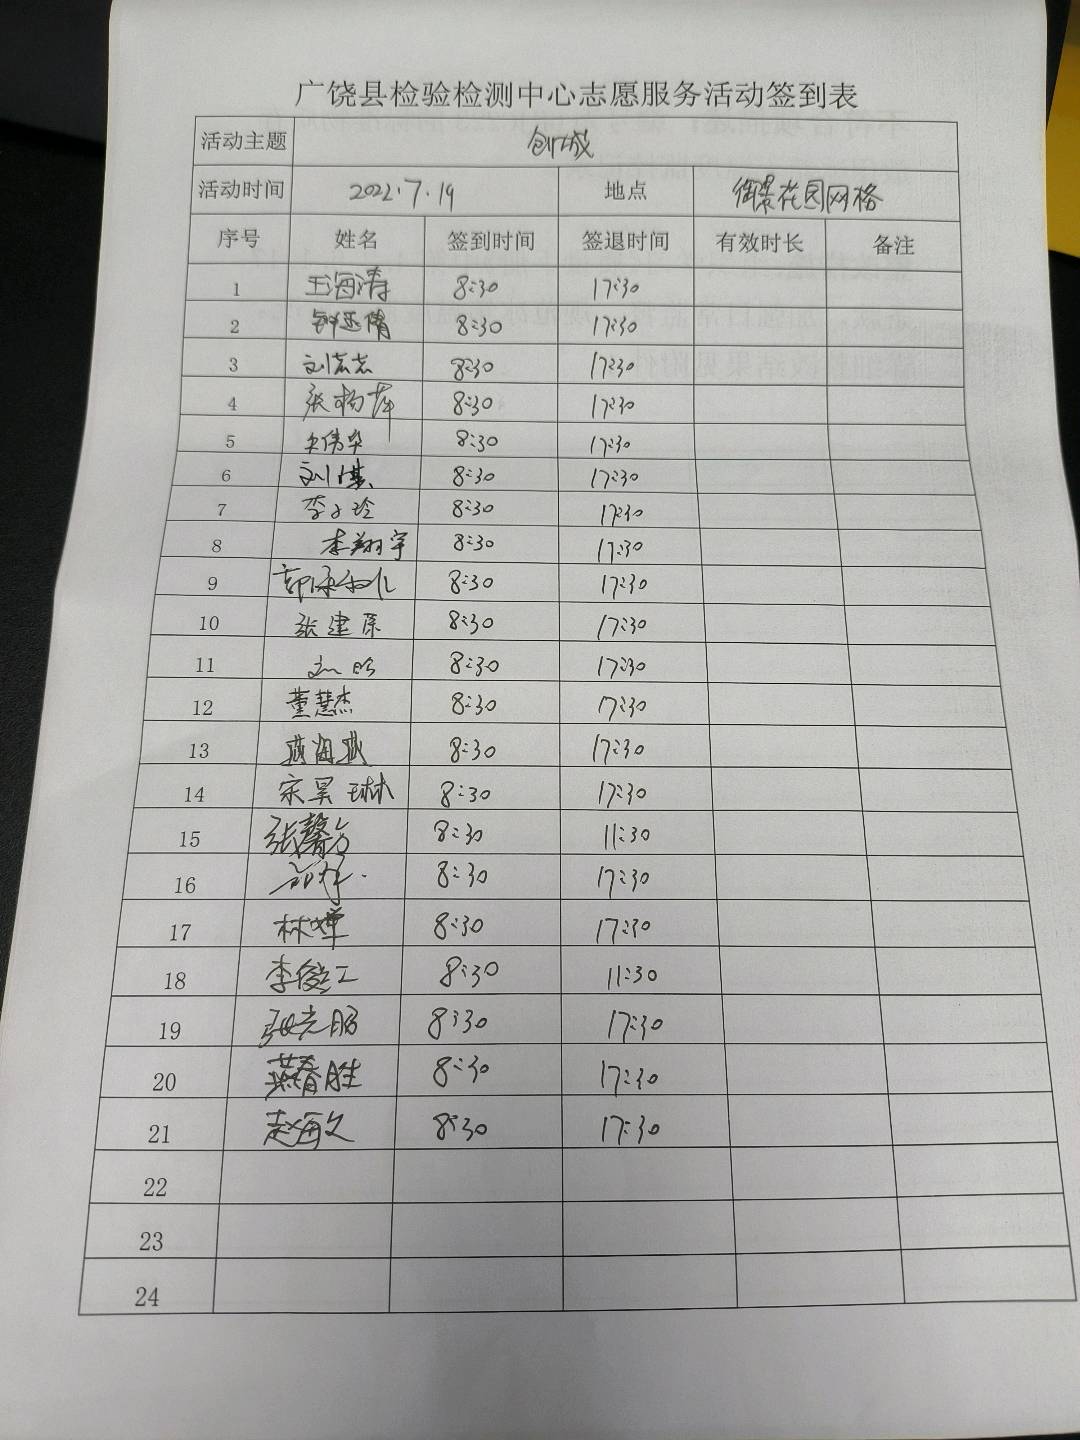 广饶县检验检测中心志愿服务活动签到表
活动主题 创城
活动时间 2022.7.19 地点 御景花园网格
序号 姓名 签到时间 签退时间 有效时长 备注
1 王海涛 8:30 17:30
2 8:30 17:30
3 刘宏志 8:30 17:30
4 张杨萍 8:30 17:30
5 王伟华 8:30 17:30
6 刘 8:30 17:30
7 李子玲 8:30 17:30
8 李翔宇 8:30 17:30
9 8:30 17:30
10 张建 8:30 17:30
11 8:30 17:30
12 董慧杰 8:30 17:30
13 燕海燕 8:30 17:30
14 宋昊琳 8:30 17:30
15 张馨方 8:30 11:30
16 8:30 17:30
17 林婵 8:30 17:30
18 李俊江 8:30 11:30
19 张光 8:30 17:30
20 燕春胜 8:30 17:30
21 赵海文 8:30 17:30
22
23
24